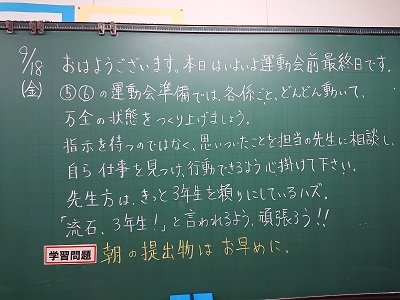 9/18 おはようございます。本日はいよいよ運動会前最終日です。
(金) ⑤⑥の運動会準備では、各係ごと、どんどん動いて、
万全の状態をつくり上げましょう。
指示を待つのではなく、思いついたことを担当の先生に相談し、
自ら仕事を見つけ、行動できるよう心掛けて下さい。
先生方は、きっと3年生を頼りにしているハズ。
「流石、3年生!」と言われるよう、頑張ろう!!
学習問題 朝の提出物はお早めに。